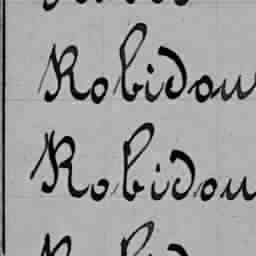 Robidou
Robidou